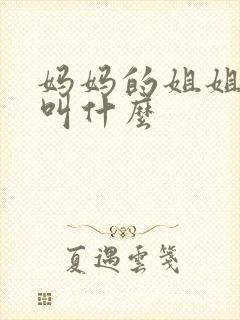 妈妈的姐姐
叫什麼
夏遇雲箋